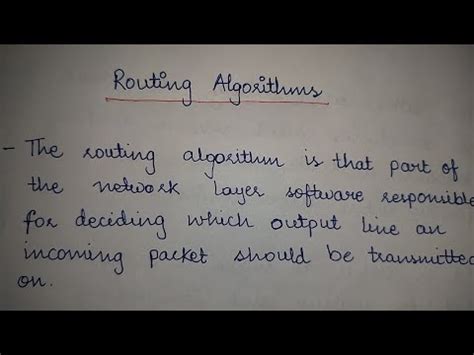 Routing Algorithms
- The routing algorithm is that part of
the network layer software responsible
for deciding which output line an
incoming packet should be transmitted
on.